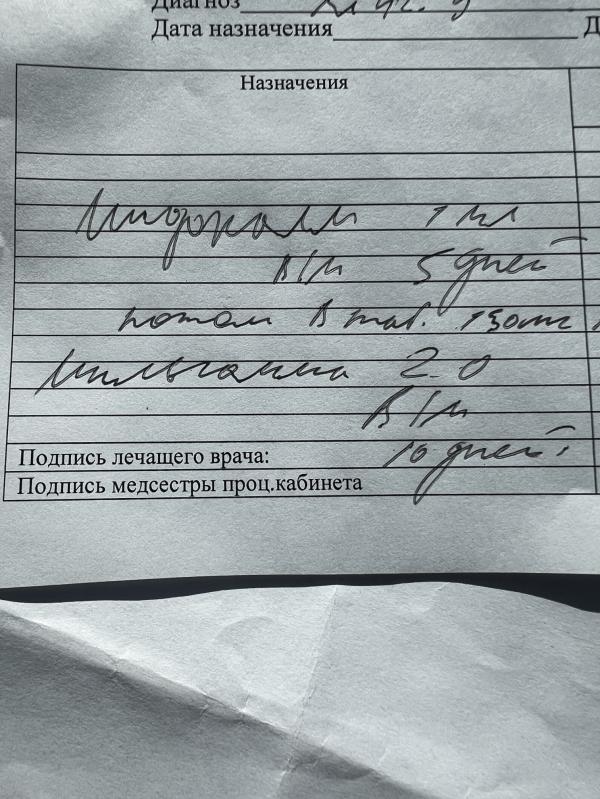 Диагноз
Дата назначения
Назначения
Мидокалм 1 мл
в/м 5 дней
потом в таб. 150мг
Мильгамма 2.0
в/м
10 дней.
Подпись лечащего врача:
Подпись медсестры проц.кабинета